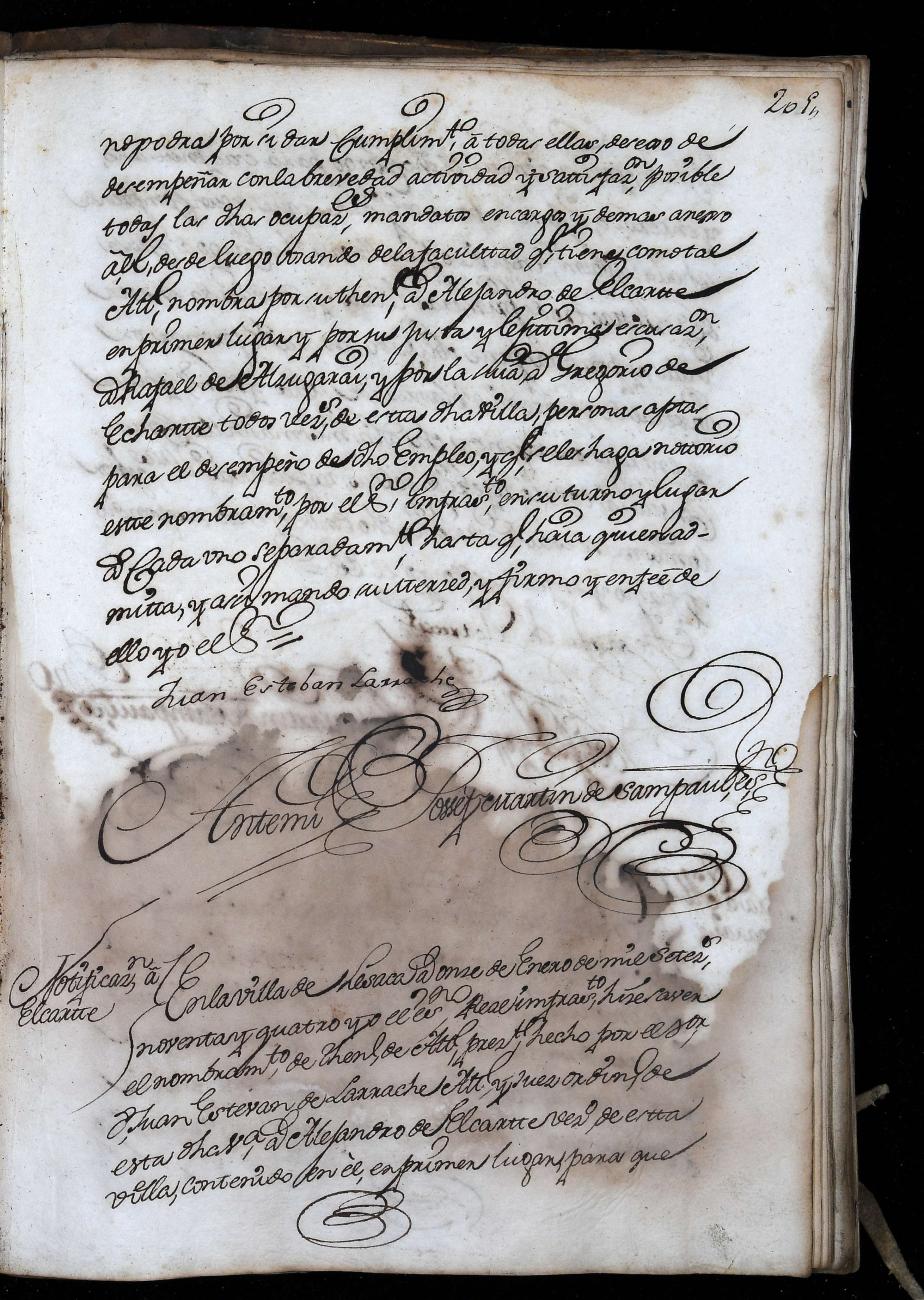 205,,
no podra por si dar Cumplim.to, a todas ellas, deseoso de
desempeñar con la brevedad actividad y sattisfaz.n posible
todas las dhas ocupaz.es, mandatos encargos y demas anexo
â él, desde luego usando de la facultad q.e tiene como tal
Alc.e, nombra por su then.te, â Alejandro de Elcartte
en primer lugar y por su justa y lexittima escusaz.n,
â Rafael de Alzugarai, y por la suia, â Gregorio de
Echartte todos vez.s, de estta dha Villa, personas aptas
para el desempeño de dho Empleo, y q.e, se les haga nottorio
estte nombram.to, por el Ess.no Infras.to, en su turno y lugar
â Cada uno separadam.te, hasta q.e, haia quien ad-
mitta, y asi mando su merzed, y firmo y en feé de
ello yo el Ess.no =
Juan Esteban Larrache
Antemi Josseph Martin de Sampaul, es.no
Notificaz.n â
Elcartte
En la villa de Lesaca â onze de Enero de mil Setez.s,
noventa y quatro yo el es.no Real infras.to, hize saver
el nombram.to, de then.te, de Alc.e, prez.te, hecho por el s.or
D.n Juan Estevan de Larrache Alc.e y Juez ordin.o, de
esta dha V.a, â Alejandro de Elcartte vez.o de estta
villa, contenido en èl, en primer lugar, para que